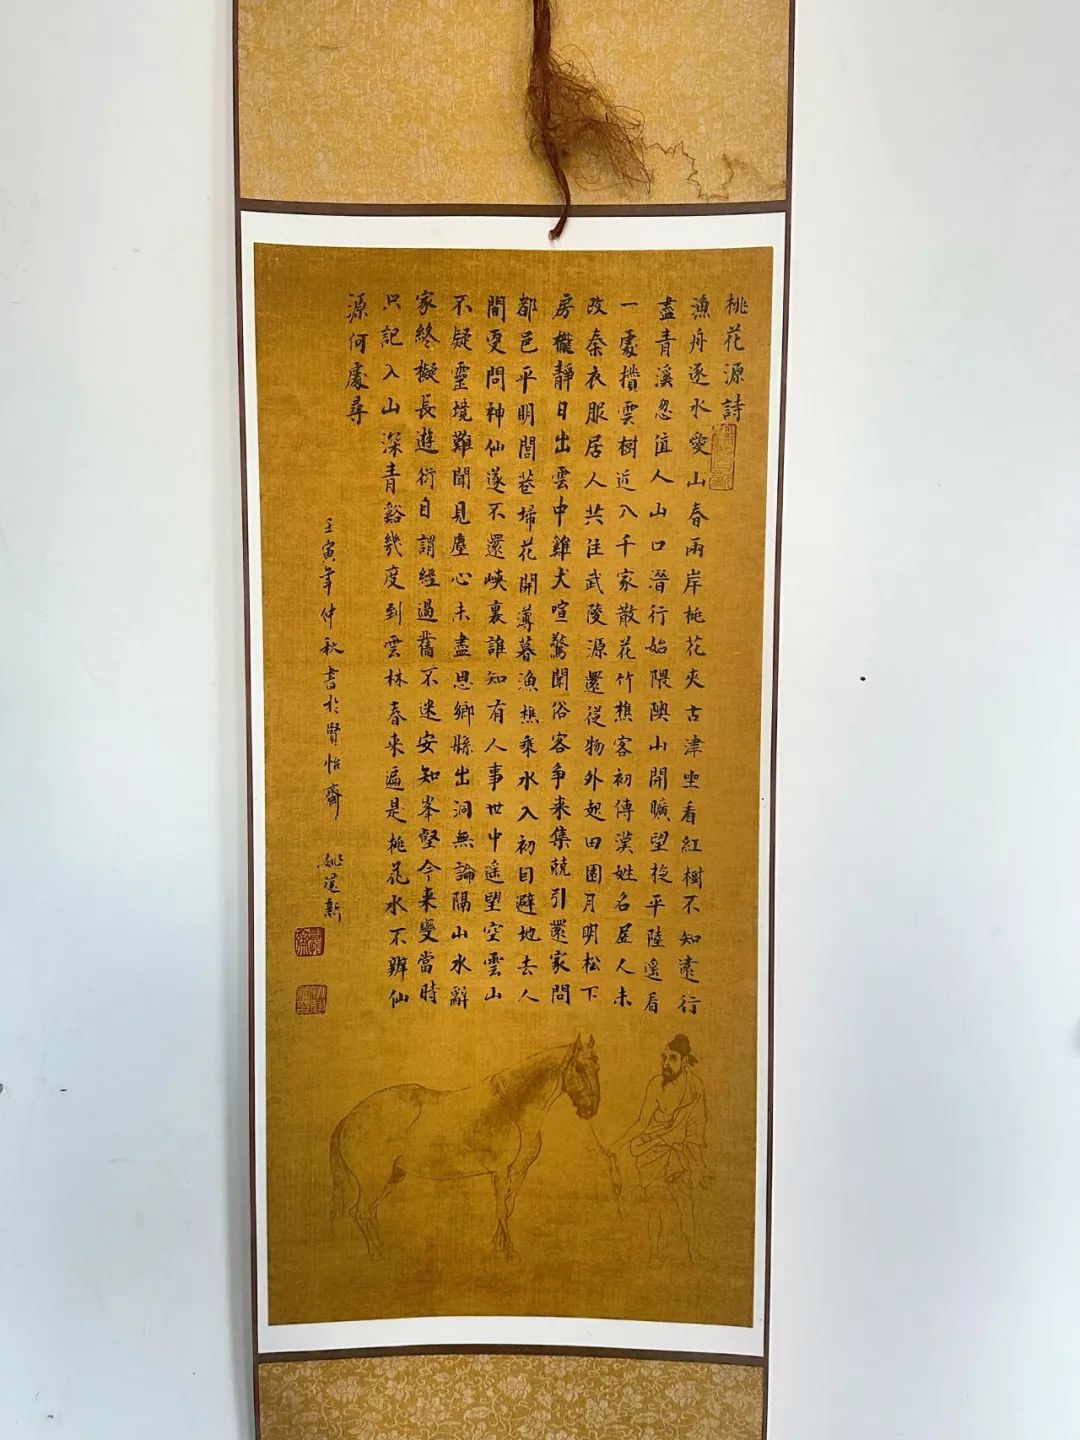 桃花源詩
漁舟逐水愛山春兩岸桃花夾古津坐看紅樹不知遠行
盡青溪忽值人山口潛行始隈隩山開曠望旋平陸遙看
一處攢雲樹近入千家散花竹樵客初傳漢姓名居人未
改秦衣服居人共住武陵源還從物外起田園月明松下
房櫳靜日出雲中雞犬喧驚聞俗客争来集競引還家問
都邑平明閭巷埽花開薄暮漁樵乘水入初因避地去人
間更問神仙遂不還峽裏誰知有人事世中遥望空雲山
不疑靈境難聞見塵心未盡思鄉縣出洞無論隔山水辭
家終擬長遊衍自謂經過舊不迷安知峯壑今来變當時
只記入山深青谿幾度到雲林春来遍是桃花水不辨仙
源何處尋
壬寅年仲秋書於賢怡齋 姚